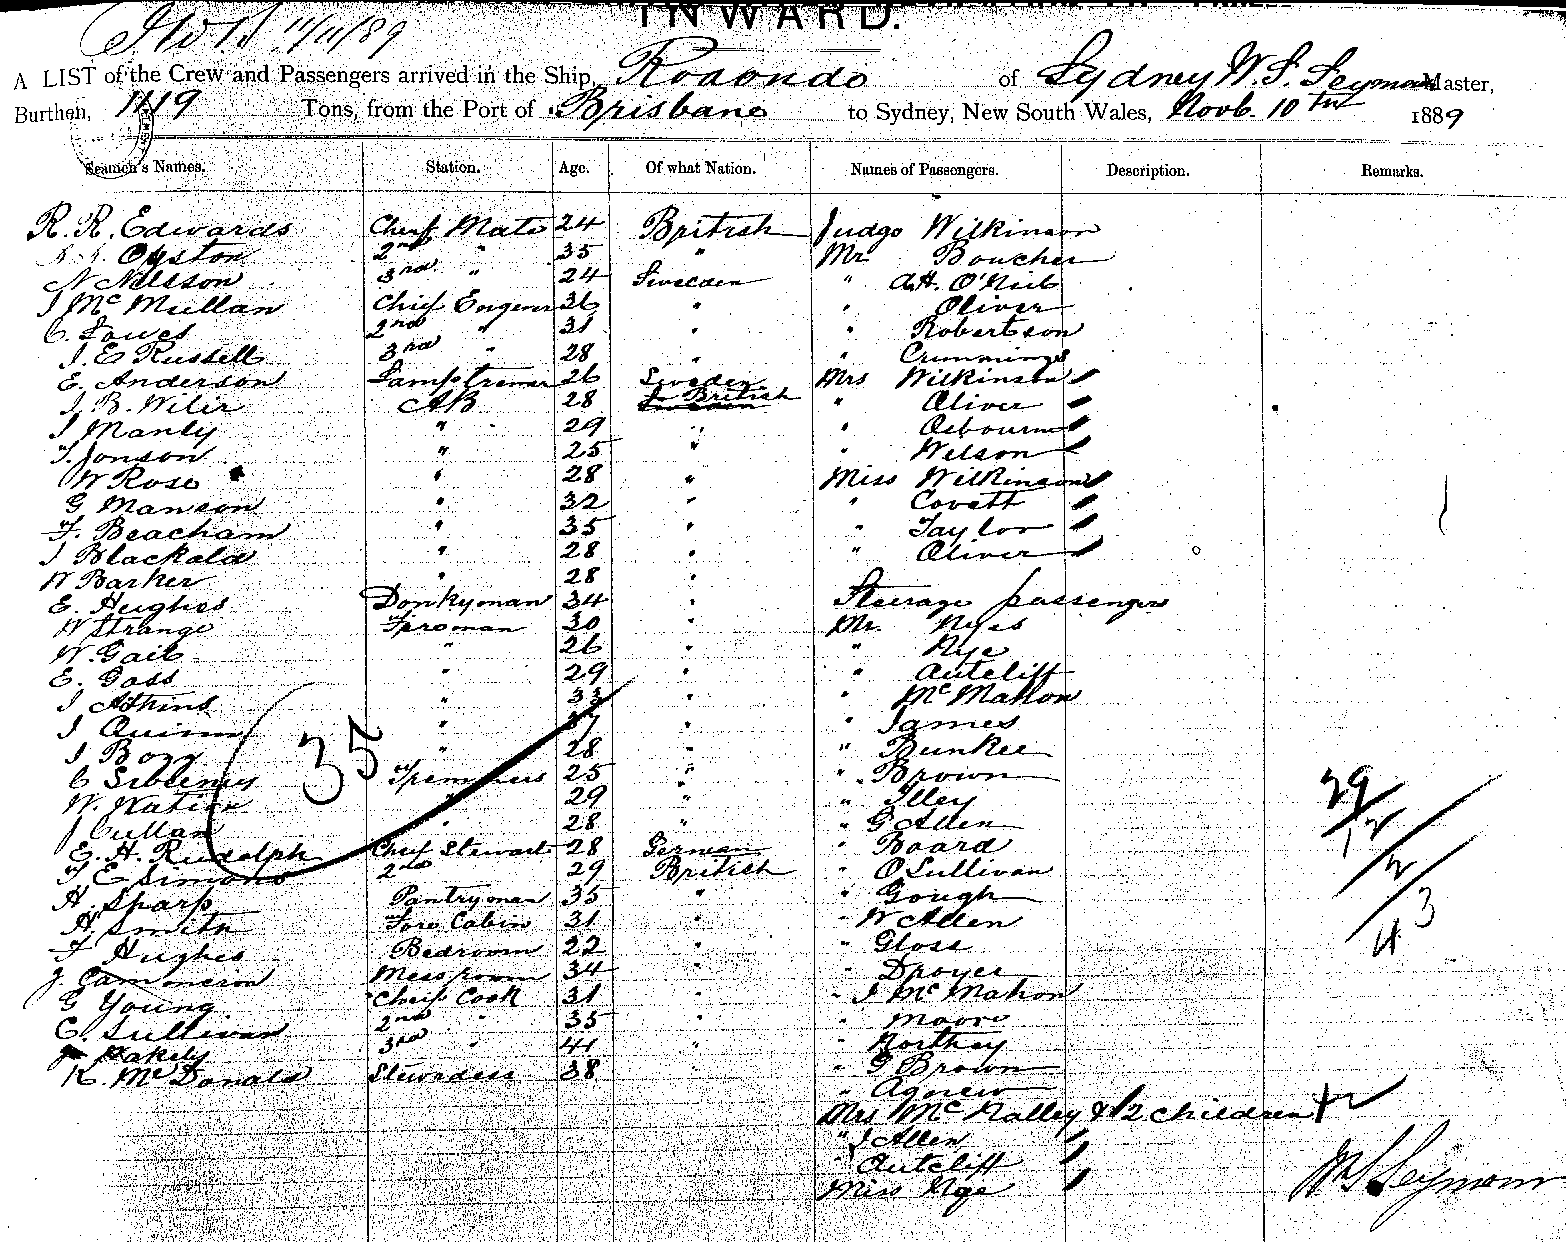 11/11/89
INWARD.
A LIST of the Crew and Passengers arrived in the Ship, Rodondo of Sydney W. S. Seymour Master,
Burthen, 1119 Tons, from the Port of Brisbane to Sydney, New South Wales, Novb. 10th 1889
Seamen's Names. Station. Age. Of what Nation. Names of Passengers. Description. Remarks.
R. R. Edwards Chief Mate 24 British Judge Wilkinson
Oyston 2nd " 35 " Mr Boucher
N Nilsson 3rd " 24 Sweeden " A.H. O'Neil
J McMullan Chief Engener 36 " " Oliver
C. Lowes 2nd " 31 " " Robertson
J. E Russell 3rd " 28 " " Crummings
E. Anderson Lamptrimer 26 Sweden Mrs Wilkinson
J. B. Wilir AB 28 British " Oliver
J Manly " 29 " " Osbourne
T. Jonson " 25 " " Wilson
W Rose " 28 " Miss Wilkinson
G Manson " 32 " " Covett
F. Beacham " 35 " " Taylor
J Blackald " 28 " " Oliver
W Barker " 28 "
E. Hughes Donkyman 34 " Steerage passengers
W Strange Fireman 30 " Mr. Nyes
W. Gail " 26 " Nye
E. Goss " 29 " " Autcliff
J Atkins " 33 " " McMahon
J Quinn " 37 " " James
J Bogg " 28 " " Bunkee
C Siblenus Trimmers 25 " " Brown
W. Watson " 29 " " Illey
J Cullan " 28 " " G Allen
E. H. Rudolph Chief Stewart 28 German " Board
F E Simons 2nd 29 British " O Sullivan
H. Sharp Pantryman 35 " " Gough
H. Smith Fore Cabin 31 " " W Allen
F Hughes Bedroom 22 " " Gloss
J. Cammeron Messroom 34 " " Droyer
G Young Chief Cook 31 " " J McMahon
C. Sullivan 2nd " 35 " " Moore
Hakely 3rd " 41 " " Northey
K. McDonald Stewardess 38 " G Brown
" Agnew
Mrs McNalley & 2 children
" J Allen
" Autcliff
Miss Nye
35
29
12
2
43
W S Seymour